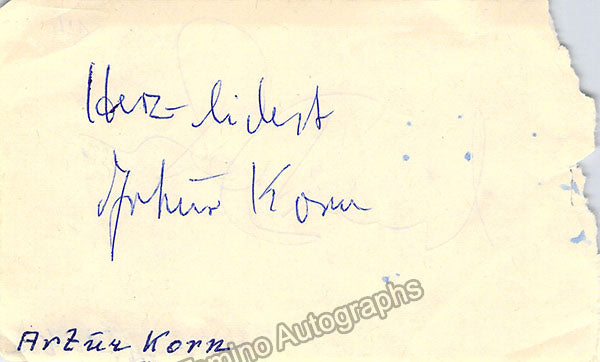 Herz-lichst
Artur Korn
Artur Korn
Tamino Autographs